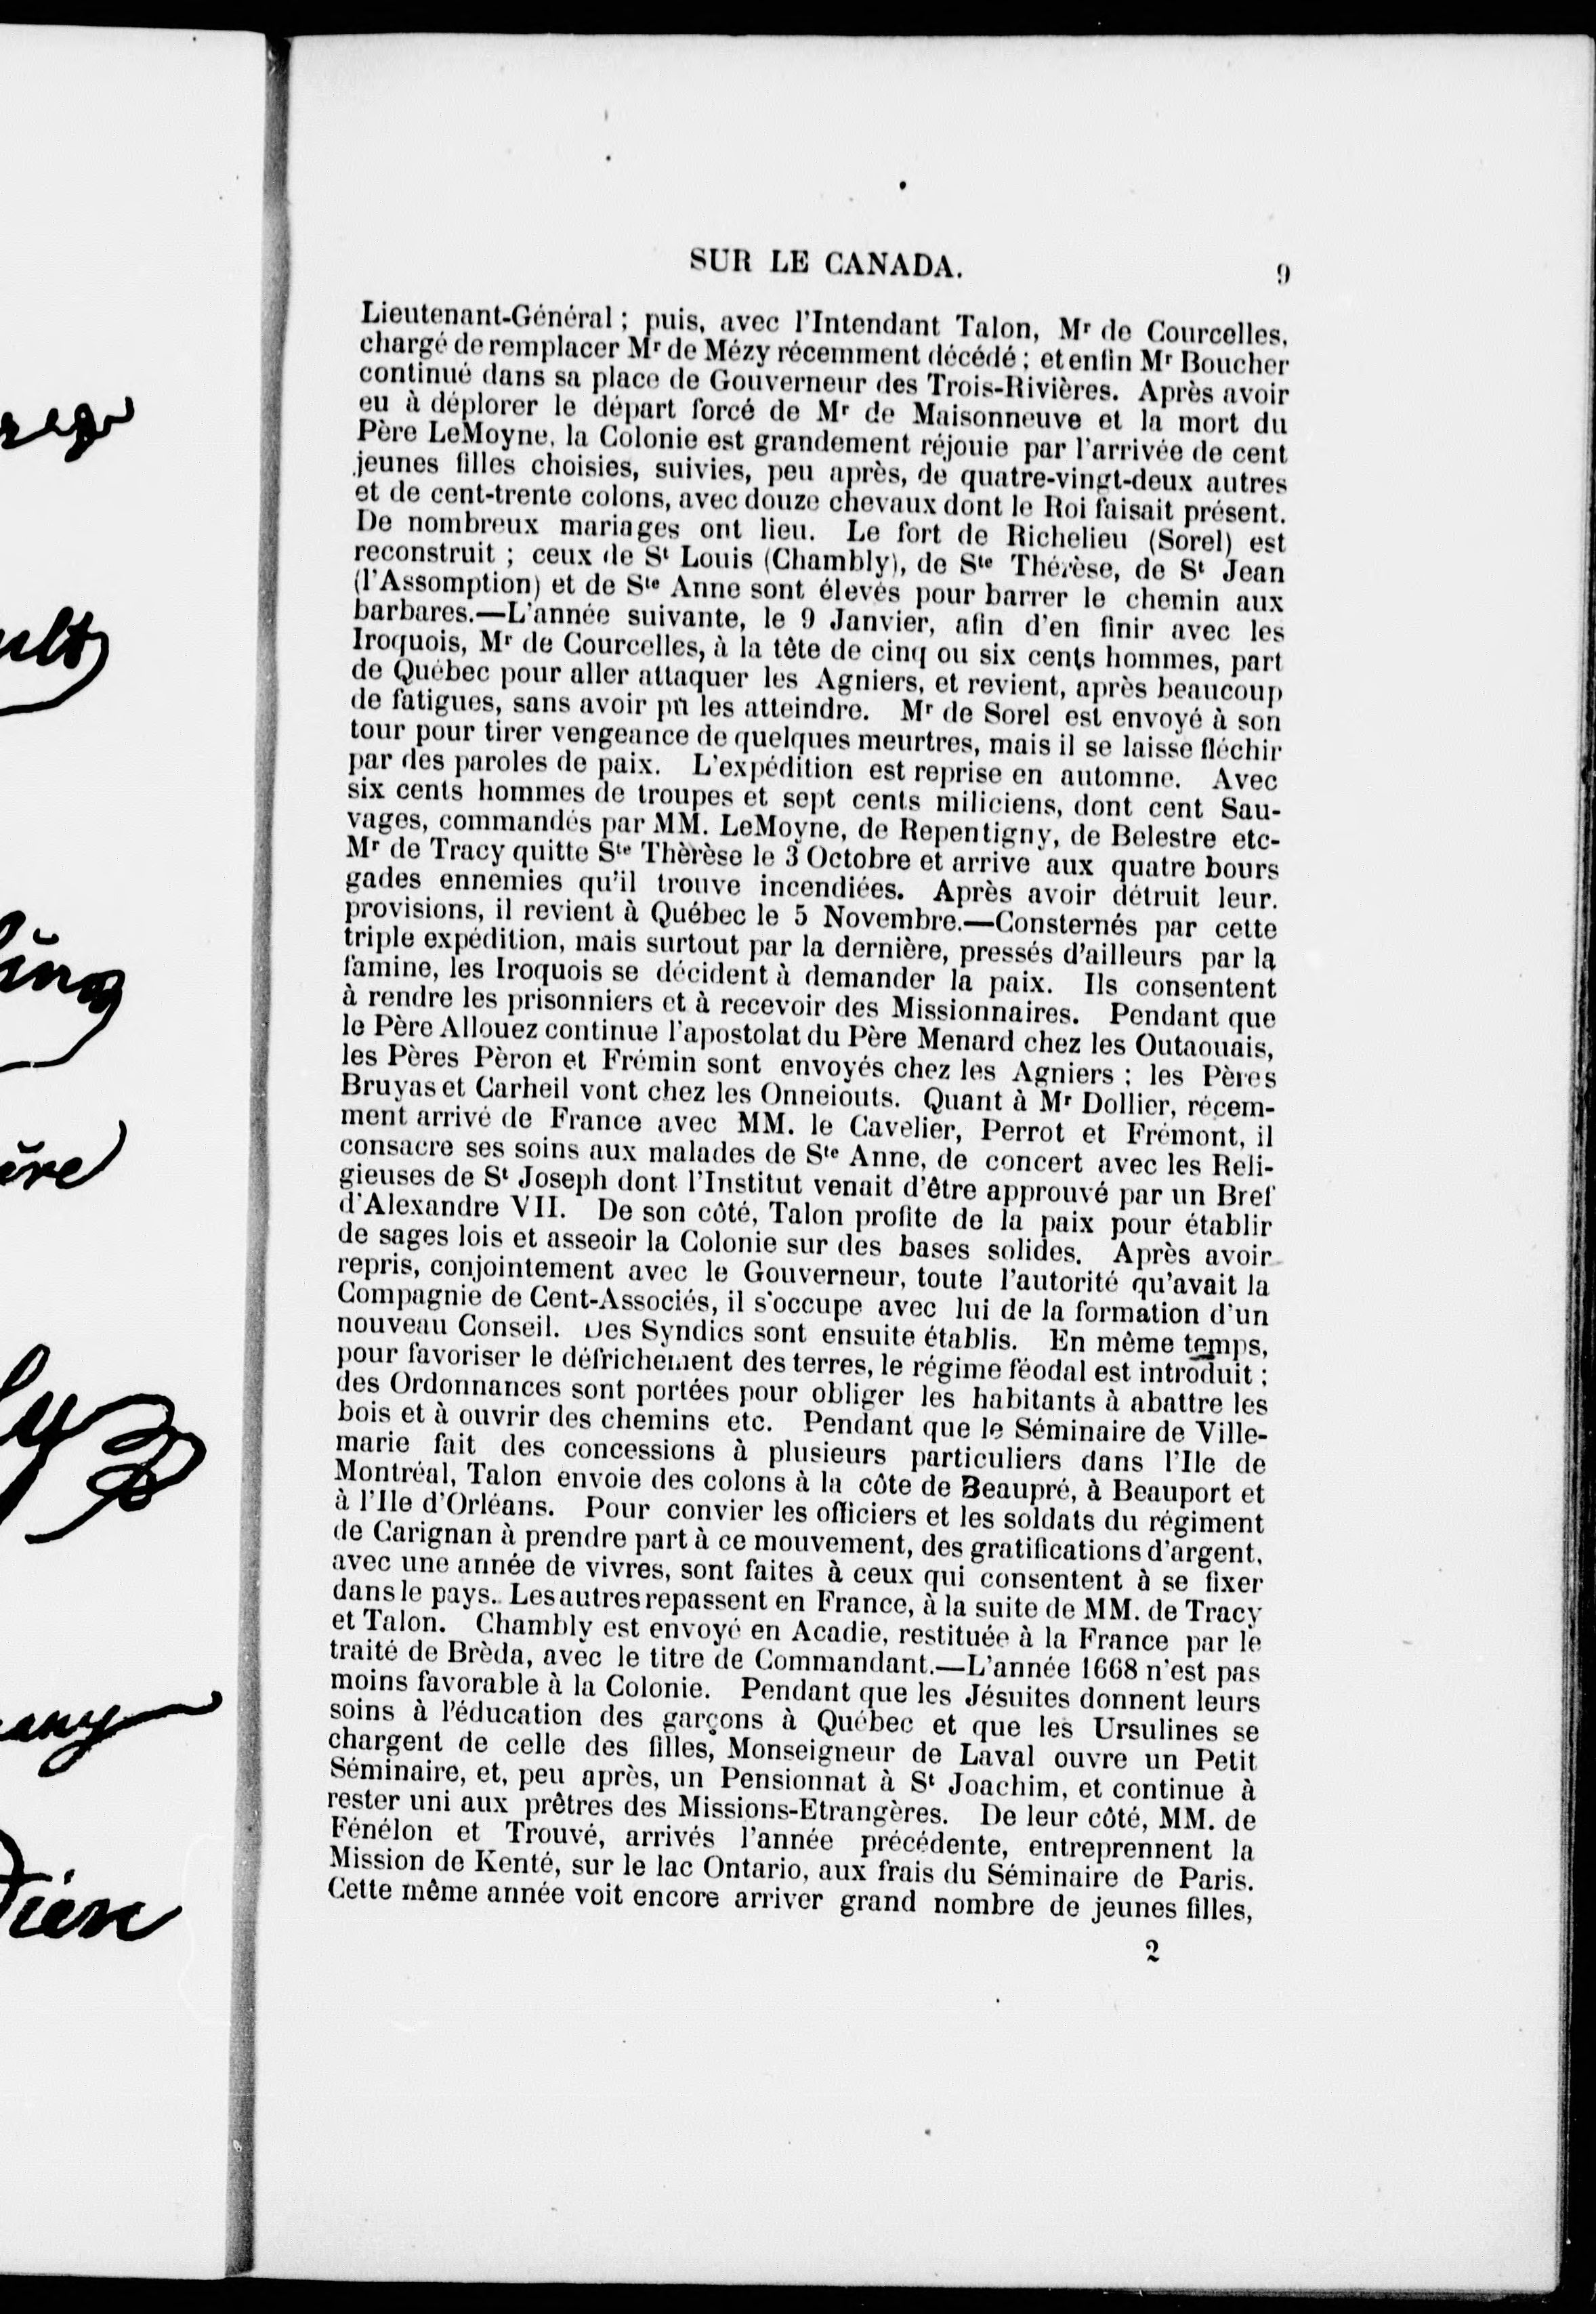 SUR LE CANADA. 9
Lieutenant-Général ; puis, avec l'Intendant Talon, Mr de Courcelles,
chargé de remplacer Mr de Mézy récemment décédé ; et enfin Mr Boucher
continué dans sa place de Gouverneur des Trois-Rivières. Après avoir
eu à déplorer le départ forcé de Mr de Maisonneuve et la mort du
Père LeMoyne, la Colonie est grandement réjouie par l'arrivée de cent
jeunes filles choisies, suivies, peu après, de quatre-vingt-deux autres
et de cent-trente colons, avec douze chevaux dont le Roi faisait présent.
De nombreux mariages ont lieu. Le fort de Richelieu (Sorel) est
reconstruit ; ceux de St Louis (Chambly), de Ste Thérèse, de St Jean
(l'Assomption) et de Ste Anne sont élevés pour barrer le chemin aux
barbares.—L'année suivante, le 9 Janvier, afin d'en finir avec les
Iroquois, Mr de Courcelles, à la tête de cinq ou six cents hommes, part
de Québec pour aller attaquer les Agniers, et revient, après beaucoup
de fatigues, sans avoir pû les atteindre. Mr de Sorel est envoyé à son
tour pour tirer vengeance de quelques meurtres, mais il se laisse fléchir
par des paroles de paix. L'expédition est reprise en automne. Avec
six cents hommes de troupes et sept cents miliciens, dont cent Sau-
vages, commandés par MM. LeMoyne, de Repentigny, de Belestre etc-
Mr de Tracy quitte Ste Thèrèse le 3 Octobre et arrive aux quatre bours
gades ennemies qu'il trouve incendiées. Après avoir détruit leur.
provisions, il revient à Québec le 5 Novembre.—Consternés par cette
triple expédition, mais surtout par la dernière, pressés d'ailleurs par la
famine, les Iroquois se décident à demander la paix. Ils consentent
à rendre les prisonniers et à recevoir des Missionnaires. Pendant que
le Père Allouez continue l'apostolat du Père Menard chez les Outaouais,
les Pères Pèron et Frémin sont envoyés chez les Agniers ; les Pères
Bruyas et Carheil vont chez les Onneiouts. Quant à Mr Dollier, récem-
ment arrivé de France avec MM. le Cavelier, Perrot et Frémont, il
consacre ses soins aux malades de Ste Anne, de concert avec les Reli-
gieuses de St Joseph dont l'Institut venait d'être approuvé par un Bref
d'Alexandre VII. De son côté, Talon profite de la paix pour établir
de sages lois et asseoir la Colonie sur des bases solides. Après avoir
repris, conjointement avec le Gouverneur, toute l'autorité qu'avait la
Compagnie de Cent-Associés, il s'occupe avec lui de la formation d'un
nouveau Conseil. Des Syndics sont ensuite établis. En même temps,
pour favoriser le défrichement des terres, le régime féodal est introduit ;
des Ordonnances sont portées pour obliger les habitants à abattre les
bois et à ouvrir des chemins etc. Pendant que le Séminaire de Ville-
marie fait des concessions à plusieurs particuliers dans l'Ile de
Montréal, Talon envoie des colons à la côte de Beaupré, à Beauport et
à l'Ile d'Orléans. Pour convier les officiers et les soldats du régiment
de Carignan à prendre part à ce mouvement, des gratifications d'argent,
avec une année de vivres, sont faites à ceux qui consentent à se fixer
dans le pays. Les autres repassent en France, à la suite de MM. de Tracy
et Talon. Chambly est envoyé en Acadie, restituée à la France par le
traité de Brèda, avec le titre de Commandant.—L'année 1668 n'est pas
moins favorable à la Colonie. Pendant que les Jésuites donnent leurs
soins à l'éducation des garçons à Québec et que les Ursulines se
chargent de celle des filles, Monseigneur de Laval ouvre un Petit
Séminaire, et, peu après, un Pensionnat à St Joachim, et continue à
rester uni aux prêtres des Missions-Etrangères. De leur côté, MM. de
Fénélon et Trouvé, arrivés l'année précédente, entreprennent la
Mission de Kenté, sur le lac Ontario, aux frais du Séminaire de Paris.
Cette même année voit encore arriver grand nombre de jeunes filles,
2